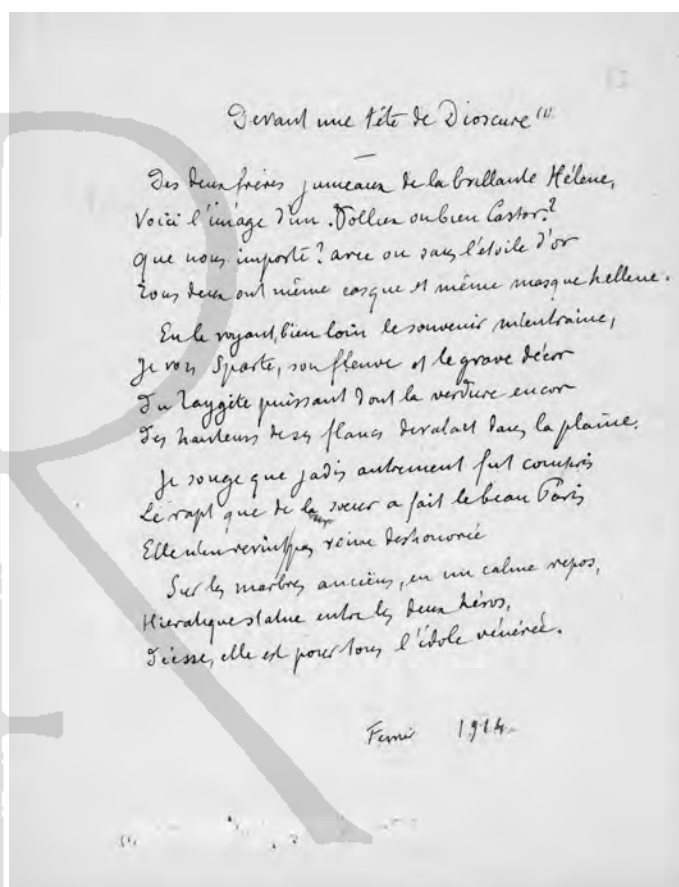 Devant une tête de Dioscure (1)
Des deux frères jumeaux de la brillante Hélene,
Voici l'image d'un. Pollux ou bien Castor?
que nous importe? avec ou sans l'étoile d'or
Tous deux ont même casque et même masque hellene.
En le voyant, bien loin le souvenir m'entraine,
Je vois Sparte, son fleuve et le grave décor
Du Taygète puissant dont la verdure encor
Des hauteurs de ses flancs dévalait dans la plaine.
Je songe que jadis autrement fut compris
Le rapt que de la sœur a fait le beau Pâris
Elle n'en revint pas reine deshonorée
Sur les marbres anciens, en un calme repos,
Hieratique statue entre les deux héros,
Déesse, elle est pour tous l'idole vénérée.
1914